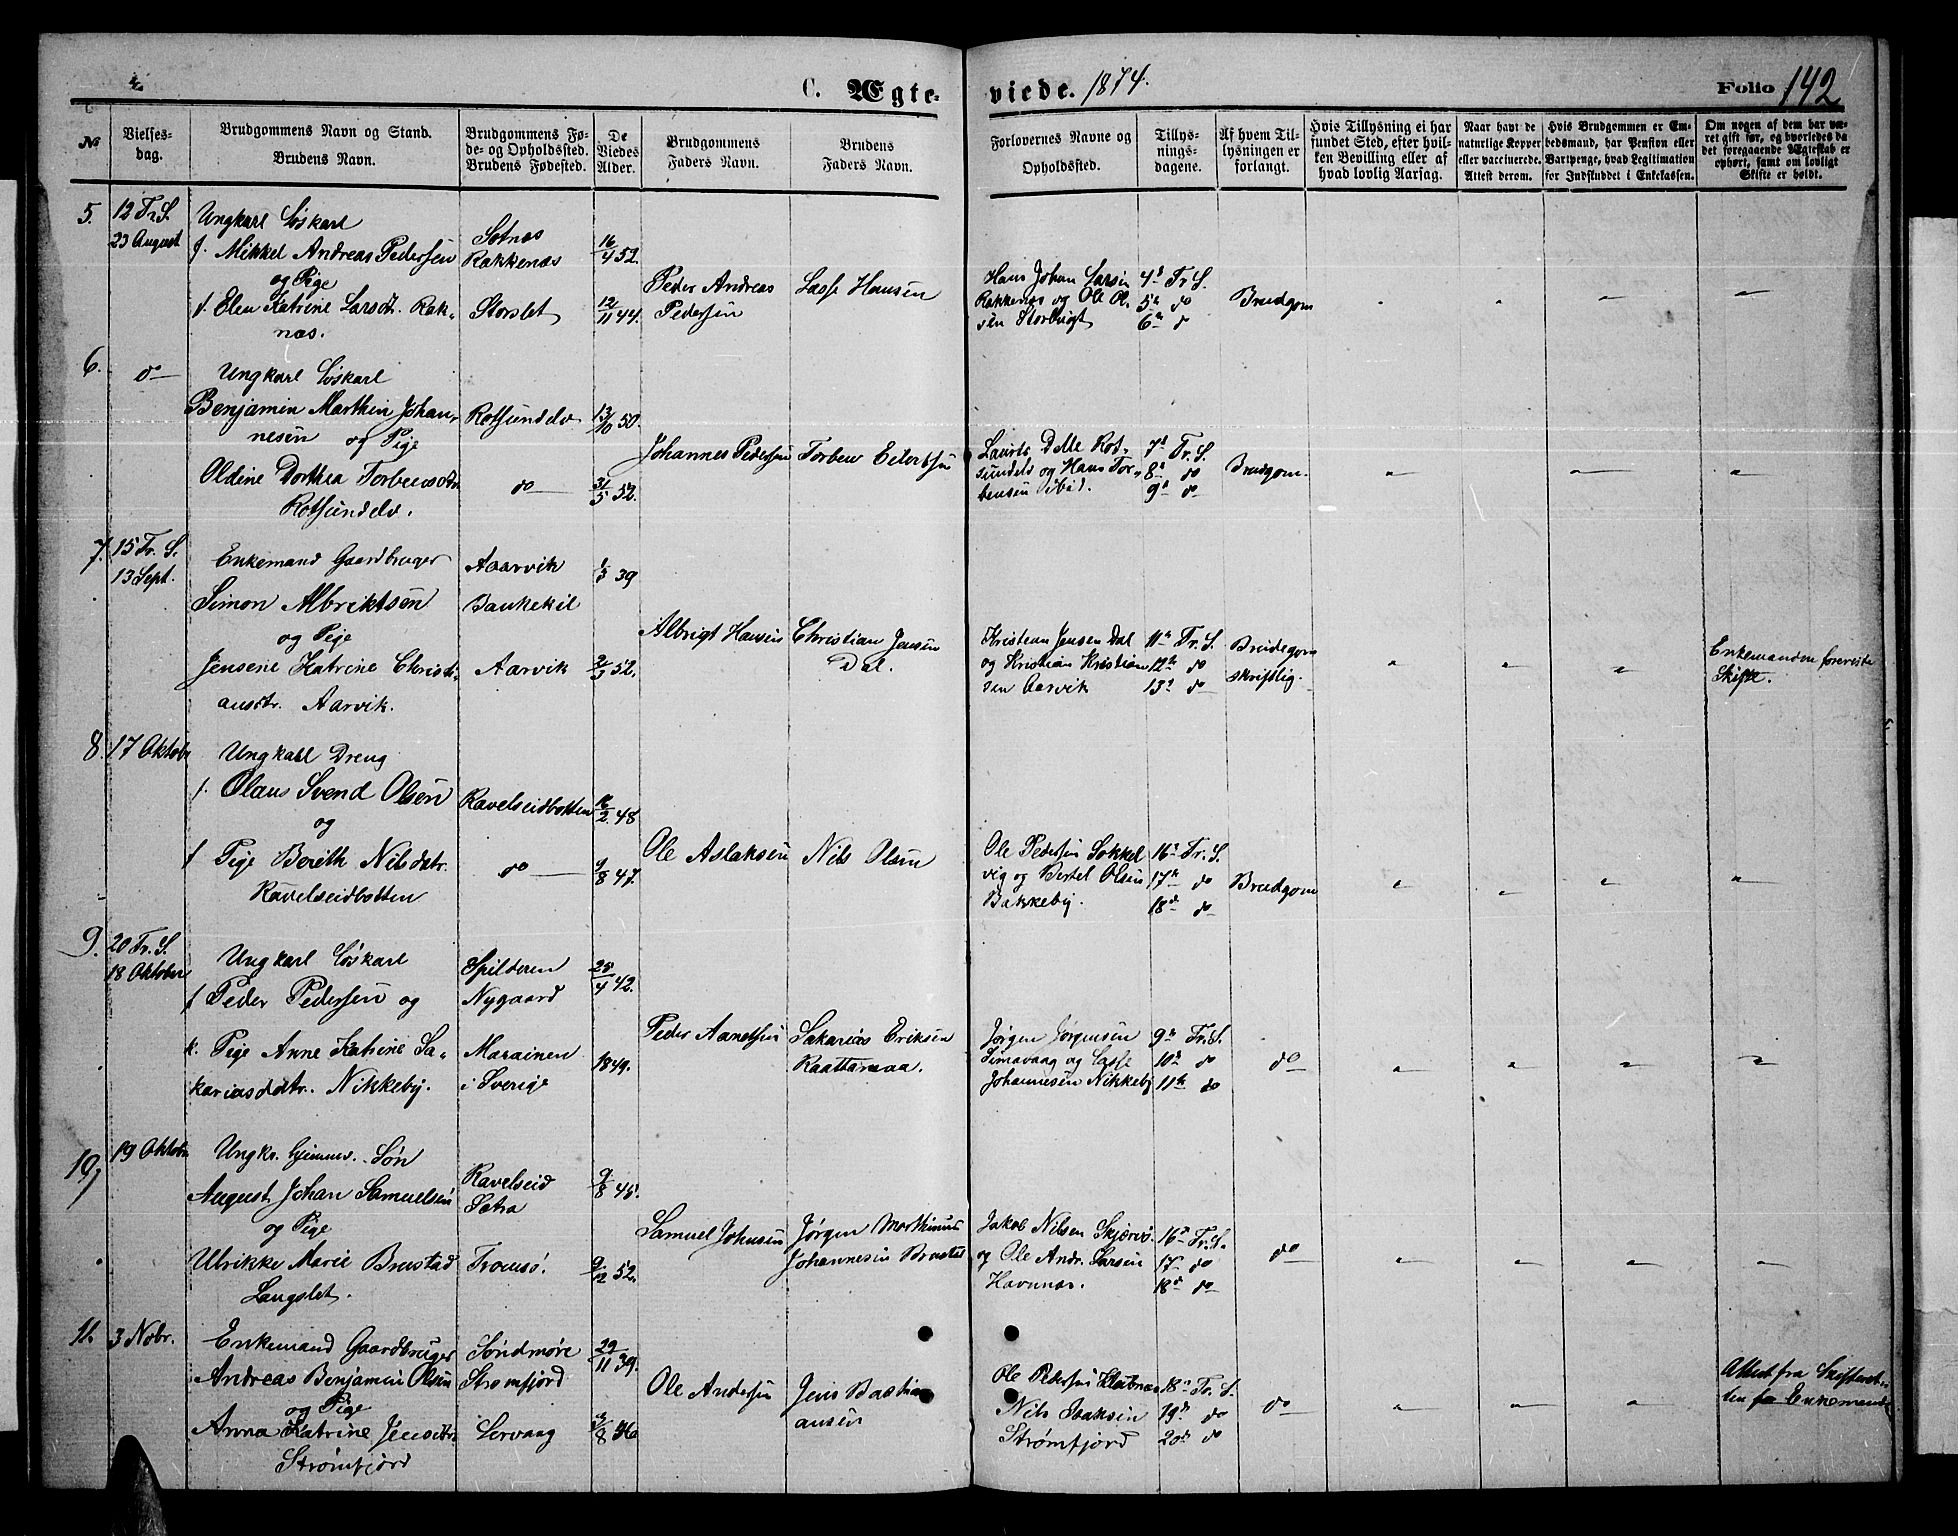 C. Ægte-
viede. 1874.
Folio 142
№
Vielses-
dag.
Brudgommens Navn og Stand.
Brudens Navn.
Brudgommens Fø-
de- og Opholdssted.
Brudens Fødested.
De
Viedes
Alder.
Brudgommens
Faders Navn.
Brudens
Faders Navn.
Forlovernes Navne og
Opholdssted.
Tillys-
nings-
dagene.
Af hvem Til-
lysningen er
forlangt.
Hvis Tillysning ei har
fundet Sted, efter hvil-
ken Bevilling eller af
hvad lovlig Aarsag.
Naar havt de
naturlige Kopper
eller vaccinerede.
Attest derom.
Hvis Brudgommen er Em-
bedsmand, har Pension eller
Vartpenge, hvad Legitimation
for Indskuddet i Enkekassen.
Om nogen af dem har væ-
ret gift før, og hvorledes da
det foregaaende Ægteskab er
ophørt, samt om lovligt
Skifte er holdt.
5.
12 Tr. S.
23 August
Ungkarl Løskarl
f. Mikkel Andreas Pedersen
og Pige
f. Elen Katrine Larsdt. Rak-
næs.
Sotnæs
Rakkenæs
Storslet
16/4 52.
12/11 44.
Peder Andreas
Pedersen
Lasse Hansen
Hans Johan Larsen
Rakkenæs og Ole Ol-
sen Storbugt
4d Tr. S.
5te do
6te d
Brudgom
6.
do
Ungkarl Løskarl
Benjamin Marthin Johan-
nesen og Pige
Oldine Dorthea Torbensdtr
Rotsundelv.
Rotsundelv
do
13/10 50.
31/5 52.
Johannes Pedersen
Torben Eilertsen
Laurits Dolle Rot-
sundelv og Hans Tor-
bensen ibid.
7d Tr. S.
8d do
9d do
Brudgom.
7.
15 Tr. S.
13 Sept.
Enkemand Gaardbruger
Simon Albriktsen
og Pige
Jensine Katrine Christi-
ansdtr. Aarvik.
Aaarvik
Baukekil
Aarvik
39
52.
Albrigt Hansen
Christian Jensen
Dal.
Kristian Jensen Dal
og Kristian Kristian-
sen Aarvik
11te Tr. S.
12te do
13d do
Brudegom
skriftlig.
Enkemanden foreviste
Skifte.
8.
17 Oktobr
Ungkarl Dreng
f. Olaus Svend Olsen
og
f Pige Bereth Nilsdatr.
Ravelseidbotten
Ravelseidbotten
do
16/2 48
9/8 47.
Ole Aslaksen
Nils Olsen
Ole Pedersen Sokkel
vig og Bertel Olsen
Bakkeby.
16d Tr. S.
17te do
18d do
Brudgom
9.
20 Tr. S.
18 Oktober
Ungkarl Løskarl
f Peder Pedersen og
k. Pige Anne Katrine Sa-
kariasddtr. Nikkeby.
Spilderen
Nygaard
Marainen
i Sverige
25/4 42.
1849.
Peder Aanetsen
Sakarias Eriksen
Raattamaa.
Jørgen Jørgensen
Simavaag og Lasse
Johannesen Nikkeby
9te Tr. S.
10te do
11te do
do
10
19 Oktobr
Ungk. hjemmv. Søn
August Johan Samuelsen
og Pige
Ulrikke Marie Brustad
Langslet.
Ravelseid
Satra
Tromsø.
9/8 45.
9/12 52.
Samuel Johnsen
Jørgen Morthinus
Johannesen Brustad
Jakob Nilsen Skjærvø.
og Ole Andr. Larsen
Havnnæs.
16d Tr. S.
17 do
18d do
do
11.
3 Nobr.
Enkemand Gaardbruger
Andreas Benjamin Olsen
og Pige
Anna Katrine Jensdtr.
Strømfjord
Søndmøre
Strømfjord
Lervaag
29/11 39.
3/8 46
Ole Andersen
Jens Basti
ansen
Ole Pedersen
Nils Isaksen
Strømfjord
18d Tr. S.
19de do
20de do
do
Attest fra Skifteret-
ten fra Enkemand